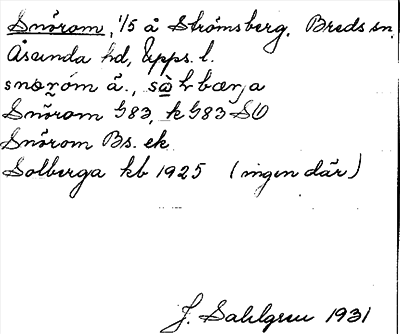 Snörom, 1/5 å Strömsberg. Breds sn,
Åsunda hd, Upps. l.
Snörom G83, k G83 SO
Snörom Bs. ek
Solberga kb 1925 (ingen där)
J. Sahlgren 1931